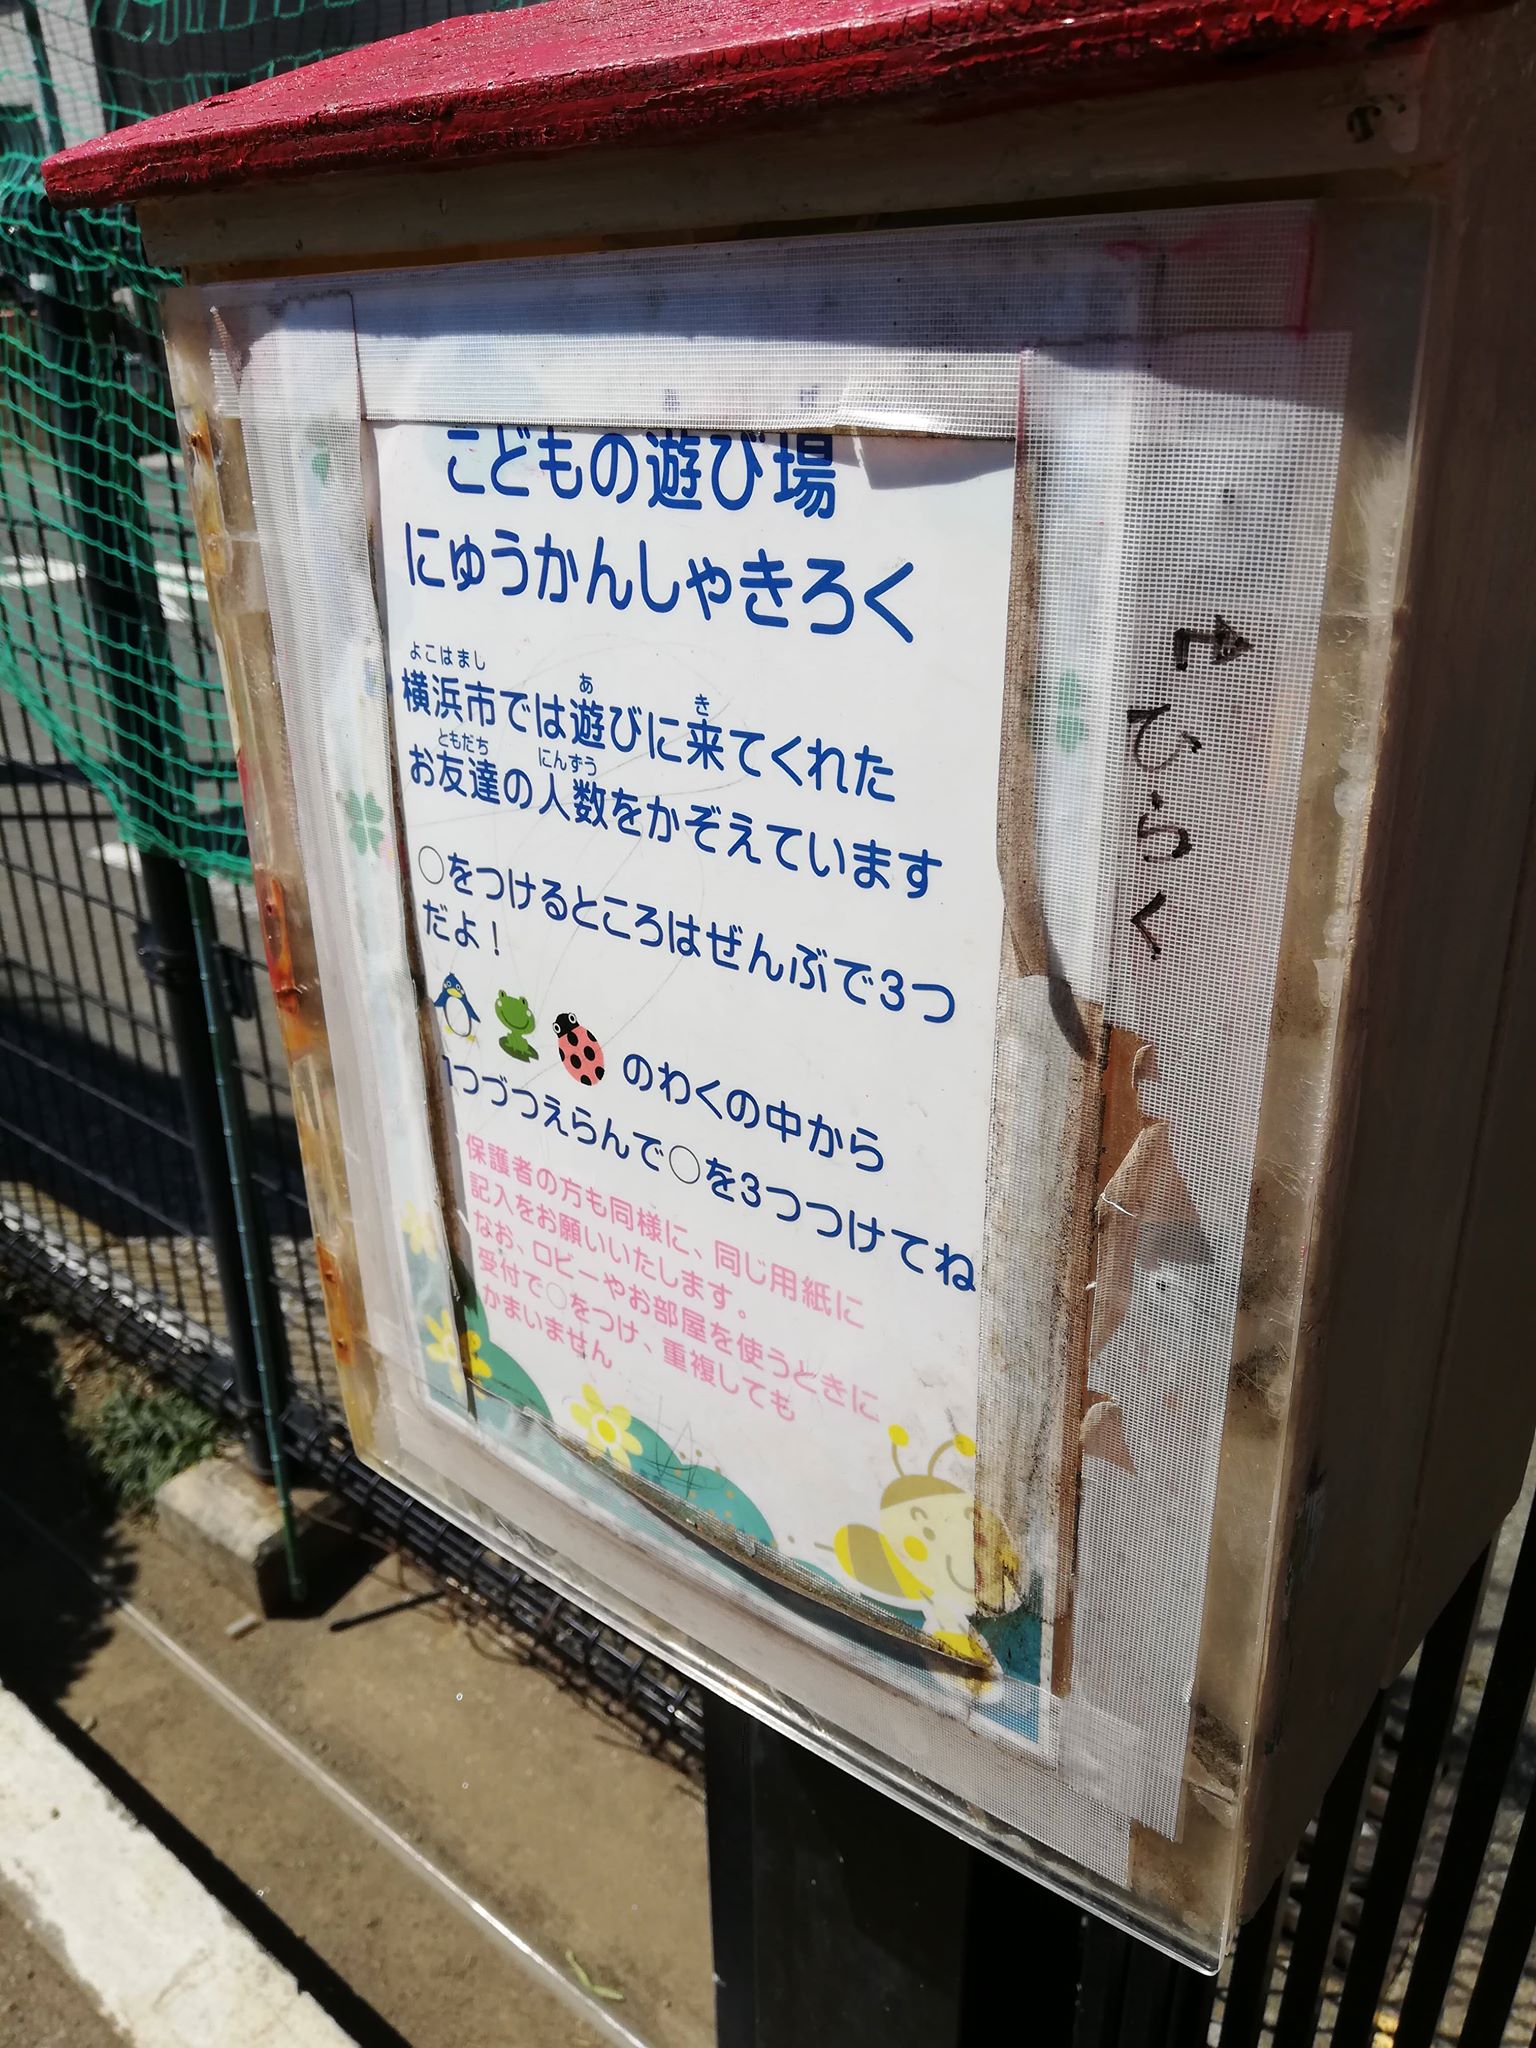 こどもの遊び場
にゅうかんしゃきろく
よこはまし あ き
横浜市では遊びに来てくれた
ともだち にんずう
お友達の人数をかぞえています
○をつけるところはぜんぶで3つ
だよ!
のわくの中から
1つづつえらんで○を3つつけてね
保護者の方も同様に、同じ用紙に
記入をお願いいたします。
なお、ロビーやお部屋を使うときに
受付で○をつけ、重複しても
かまいません
ひらく